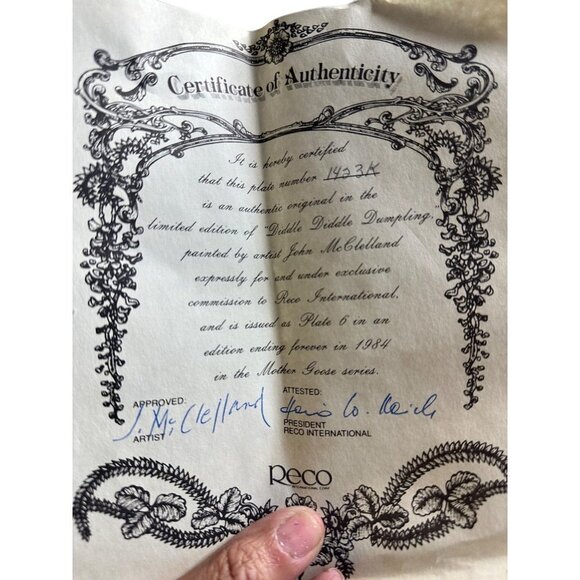 Certificate of Authenticity
It is hereby certified
that this plate number 1423K
is an authentic original in the
limited edition of "Diddle Diddle Dumpling,"
painted by artist John McClelland
expressly for and under exclusive
commission to Reco International,
and is issued as Plate 6 in an
edition ending forever in 1984
in the Mother Goose series.
APPROVED:
J. McClelland
ARTIST
ATTESTED:
PRESIDENT
RECO INTERNATIONAL
Reco
INTERNATIONAL CORP.